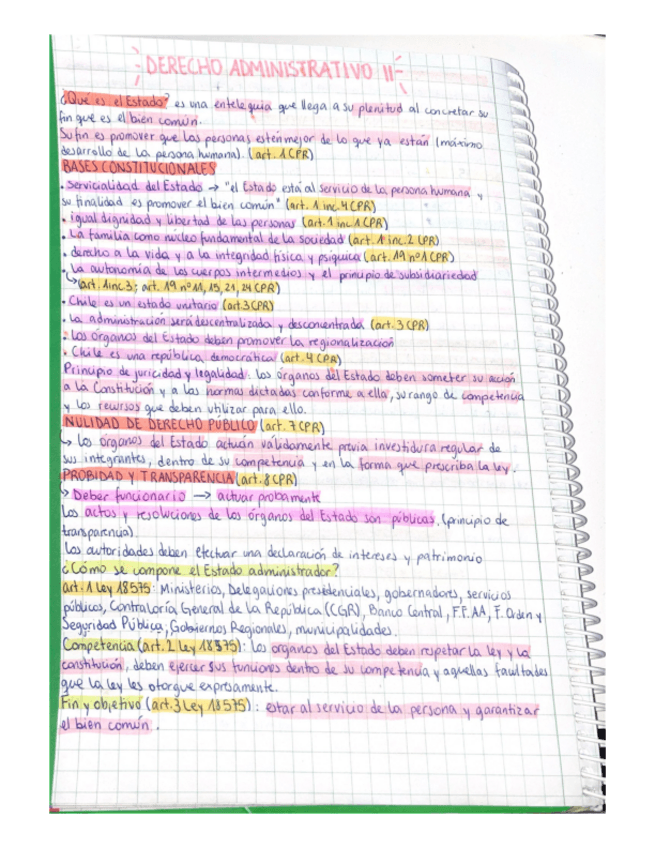 DERECHO ADMINISTRATIVO II
¿Qué es el Estado? es una entelequia que llega a su plenitud al concretar su
fin que es el bien común.
Su fin es promover que las personas esten mejor de lo que ya están (máximo
desarrollo de la persona humana). (art. 1 CPR)
BASES CONSTITUCIONALES
• Servicialidad del Estado → "el Estado está al servicio de la persona humana y
su finalidad es promover el bien común" (art. 1 inc. 4 CPR)
• igual dignidad y libertad de las personas (art. 1 inc. 1 CPR)
• La familia como núcleo fundamental de la sociedad (art. 1 inc. 2 CPR)
• derecho a la vida y a la integridad física y psíquica (art. 19 nº 1 CPR)
• La autonomía de los cuerpos intermedios y el principio de subsidiariedad
↳ (art. 1 inc 3; art. 19 nº 11, 15, 21, 24 CPR)
• Chile es un estado unitario (art. 3 CPR)
• La administración será descentralizada y desconcentrada (art. 3 CPR)
• Los órganos del Estado deben promover la regionalización
• Chile es una república democrática (art. 4 CPR)
Principio de juricidad y legalidad: los órganos del Estado deben someter su acción
a la Constitución y a las normas dictadas conforme a ella, su rango de competencia
y los recursos que deben utilizar para ello.
NULIDAD DE DERECHO PÚBLICO (art. 7 CPR)
↳ Los órganos del Estado actúan válidamente previa investidura regular de
sus integrantes, dentro de su competencia y en la forma que prescriba la ley.
PROBIDAD Y TRANSPARENCIA (art. 8 CPR)
↳ Deber funcionario → actuar probamente
Los actos y resoluciones de los órganos del Estado son públicas, (principio de
transparencia).
Las autoridades deben efectuar una declaración de intereses y patrimonio
¿Cómo se compone el Estado administrador?
art. 1 Ley 18575: Ministerios, Delegaciones presidenciales, gobernadores, servicios
públicos, Contraloría General de la República (CGR), Banco Central, F.F.AA, F. Orden y
Seguridad Pública, Gobiernos Regionales, municipalidades.
Competencia (art. 2 Ley 18575): Los organos del Estado deben respetar la ley y la
constitución, deben ejercer sus funciones dentro de su competencia y aquellas facultades
que la ley les otorgue expresamente.
Fin y objetivo (art. 3 Ley 18575): estar al servicio de la persona y garantizar
el bien común.